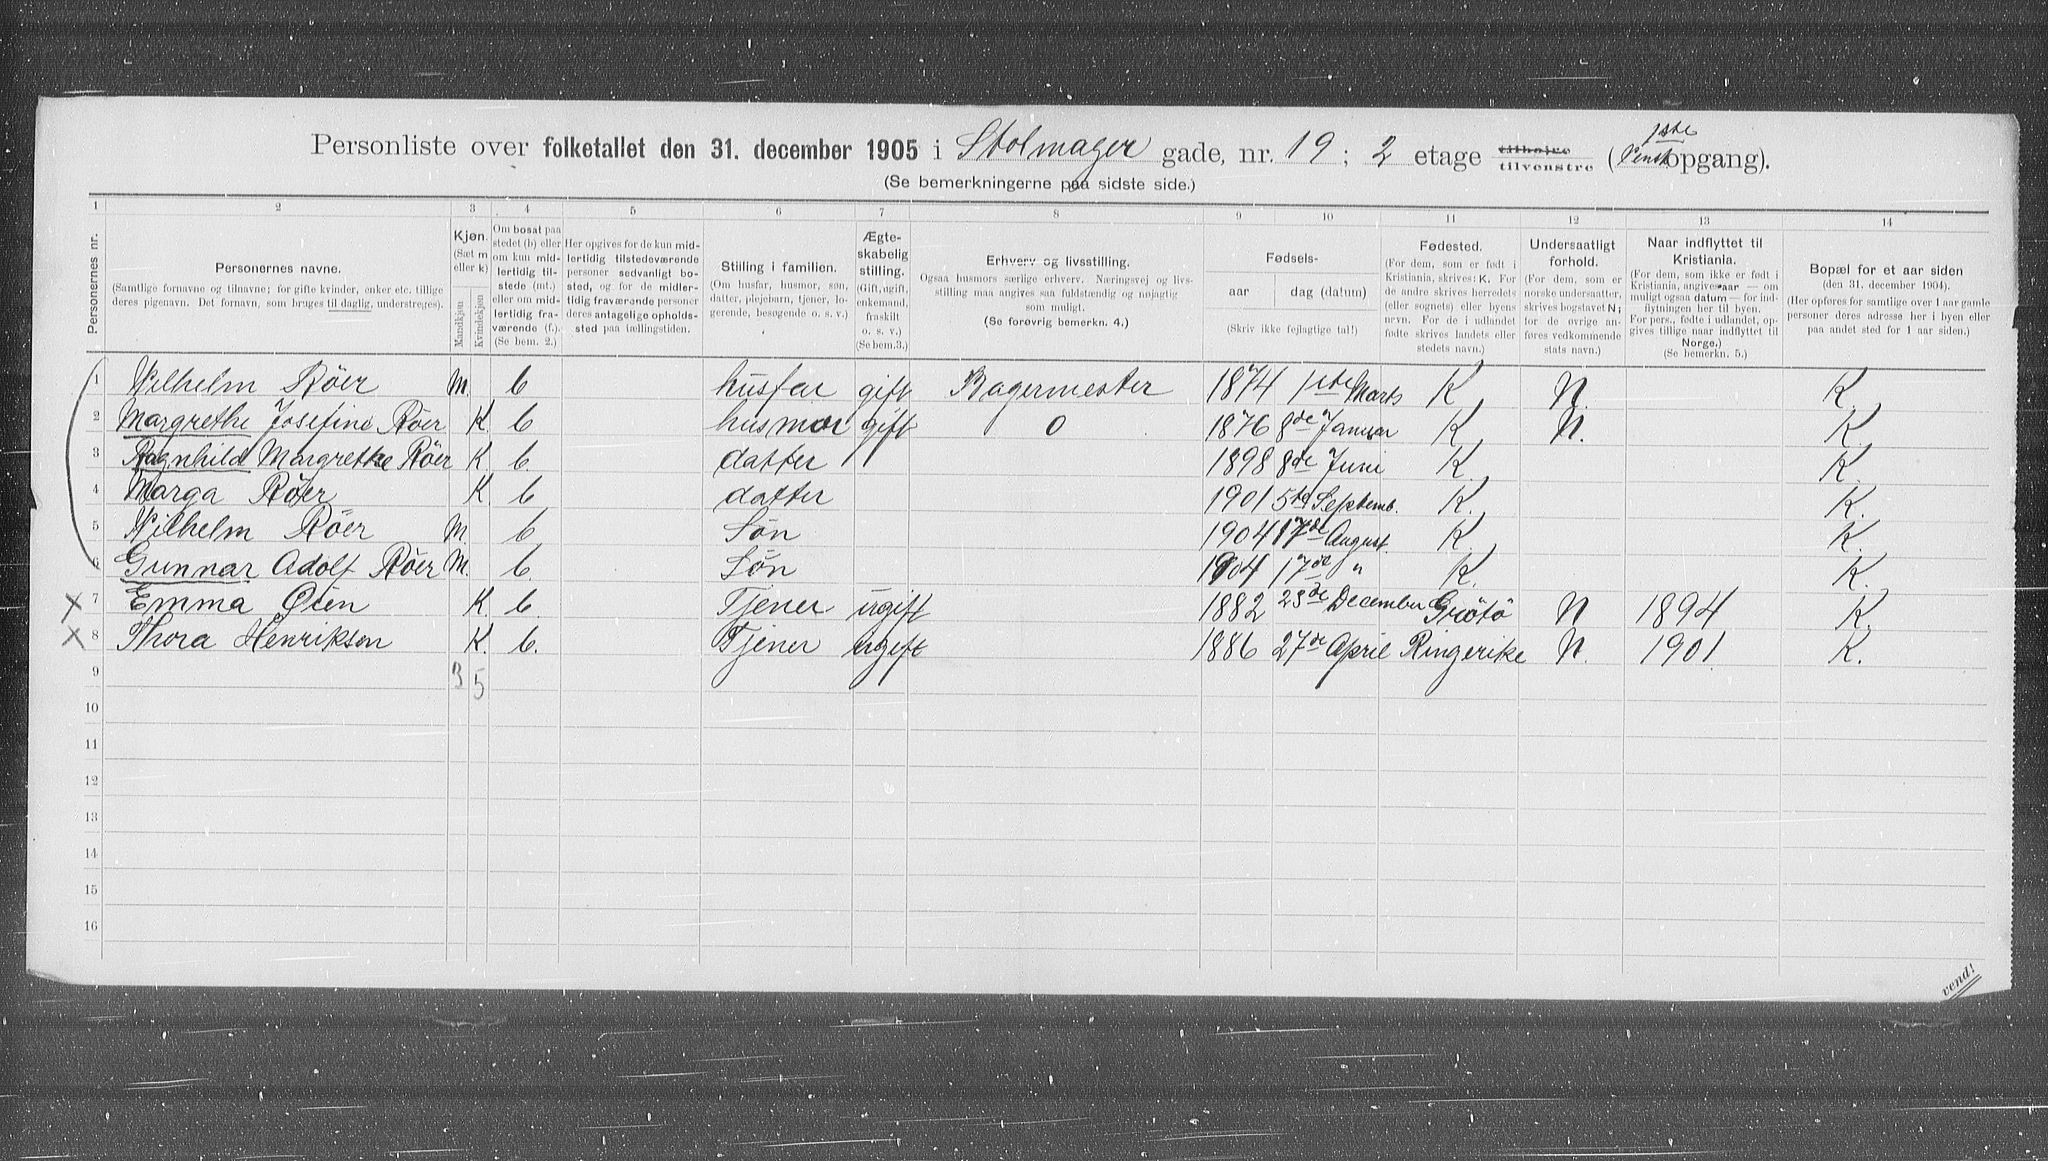 Personliste over folketallet den 31. december 1905 i Stolmager gade, nr. 19; 2 etage tilhøire tilvenstre (1ste opgang).
(Se bemerkningerne paa sidste side.)
1 2 3 4 5 6 7 8 9 10 11 12 13 14
Personernes nr.
Personernes navne.
(Samtlige fornavne og tilnavne; for gifte kvinder, enker etc. tillige
deres pigenavn. Det fornavn, som bruges til daglig, understreges).
Kjøn.
(Sæt m
eller k)
Mandkjøn
Kvindekjøn
Om bosat paa
stedet (b) eller
om kun mid-
lertidig til-
stede (mt.)
eller om mid-
lertidig fra-
værende (f.).
(Se bem. 2.)
Her opgives for de kun mid-
lertidig tilstedeværende
personer sedvanligt bo-
sted, og for de midler-
tidig fraværende personer
deres antagelige opholds-
sted paa tællingstiden.
Stilling i familien.
(Om husfar, husmor, søn,
datter, plejebarn, tjener, lo-
gerende, besøgende o. s. v.)
Ægte-
skabelig
stilling.
(Gift, ugift,
enkemand,
fraskilt
o. s. v.)
(Se bem. 3.)
Erhverv og livsstilling.
Ogsaa husmors særlige erhverv. Næringsvej og livs-
stilling maa angives saa fuldstændig og nøjagtig
som muligt.
(Se forøvrig bemerkn. 4.)
Fødsels-
aar dag (datum)
(Skriv ikke fejlagtige tal!)
Fødested.
(For dem, som er født i
Kristiania, skrives: K. For
de andre skrives herredets
(eller sognets) eller byens
navn. For de i udlandet
fødte skrives landets eller
stedets navn.)
Undersaatligt
forhold.
(For dem, som er
norske undersaatter,
skrives bogstavet N;
for de øvrige an-
føres vedkommende
stats navn.)
Naar indflyttet til
Kristiania.
(For dem, som ikke er født i
Kristiania, angives aar — om
muligt ogsaa datum — for ind-
flytningen her til byen.
For pers., fødte i udlandet, op-
gives tillige naar indflyttet til
Norge.)
(Se bemerkn. 5.)
Bopæl for et aar siden
(den 31. december 1904).
(Her opføres for samtlige over 1 aar gamle
personer deres adresse her i byen eller
paa andet sted for 1 aar siden.)
1 Wilhelm Röer M. b husfar gift Bagermester 1874 1ste Marts K N. K.
2 Margrethe Josefine Röer K. b husmor gift 0 1876 8de Januar K N. K.
3 Ragnhild Margrethe Röer K. b. datter 1898 8de Juni K K.
4 Marga Röer K. b datter 1901 5te Septemb. K. K.
5 Wilhelm Röer M. b Søn 1904 17de August. K. K.
6 Gunnar Adolf Röer M. b. Søn 1904 17de " K. K.
7 Emma Øien K. b Tjener ugift 1882 23de December Grötö N 1894 K.
8 Thora Henriksen K. b. Tjener ugift 1886 27de April Ringerike N. 1901. K.
9 3 5
10
11
12
13
14
15
16
vend!